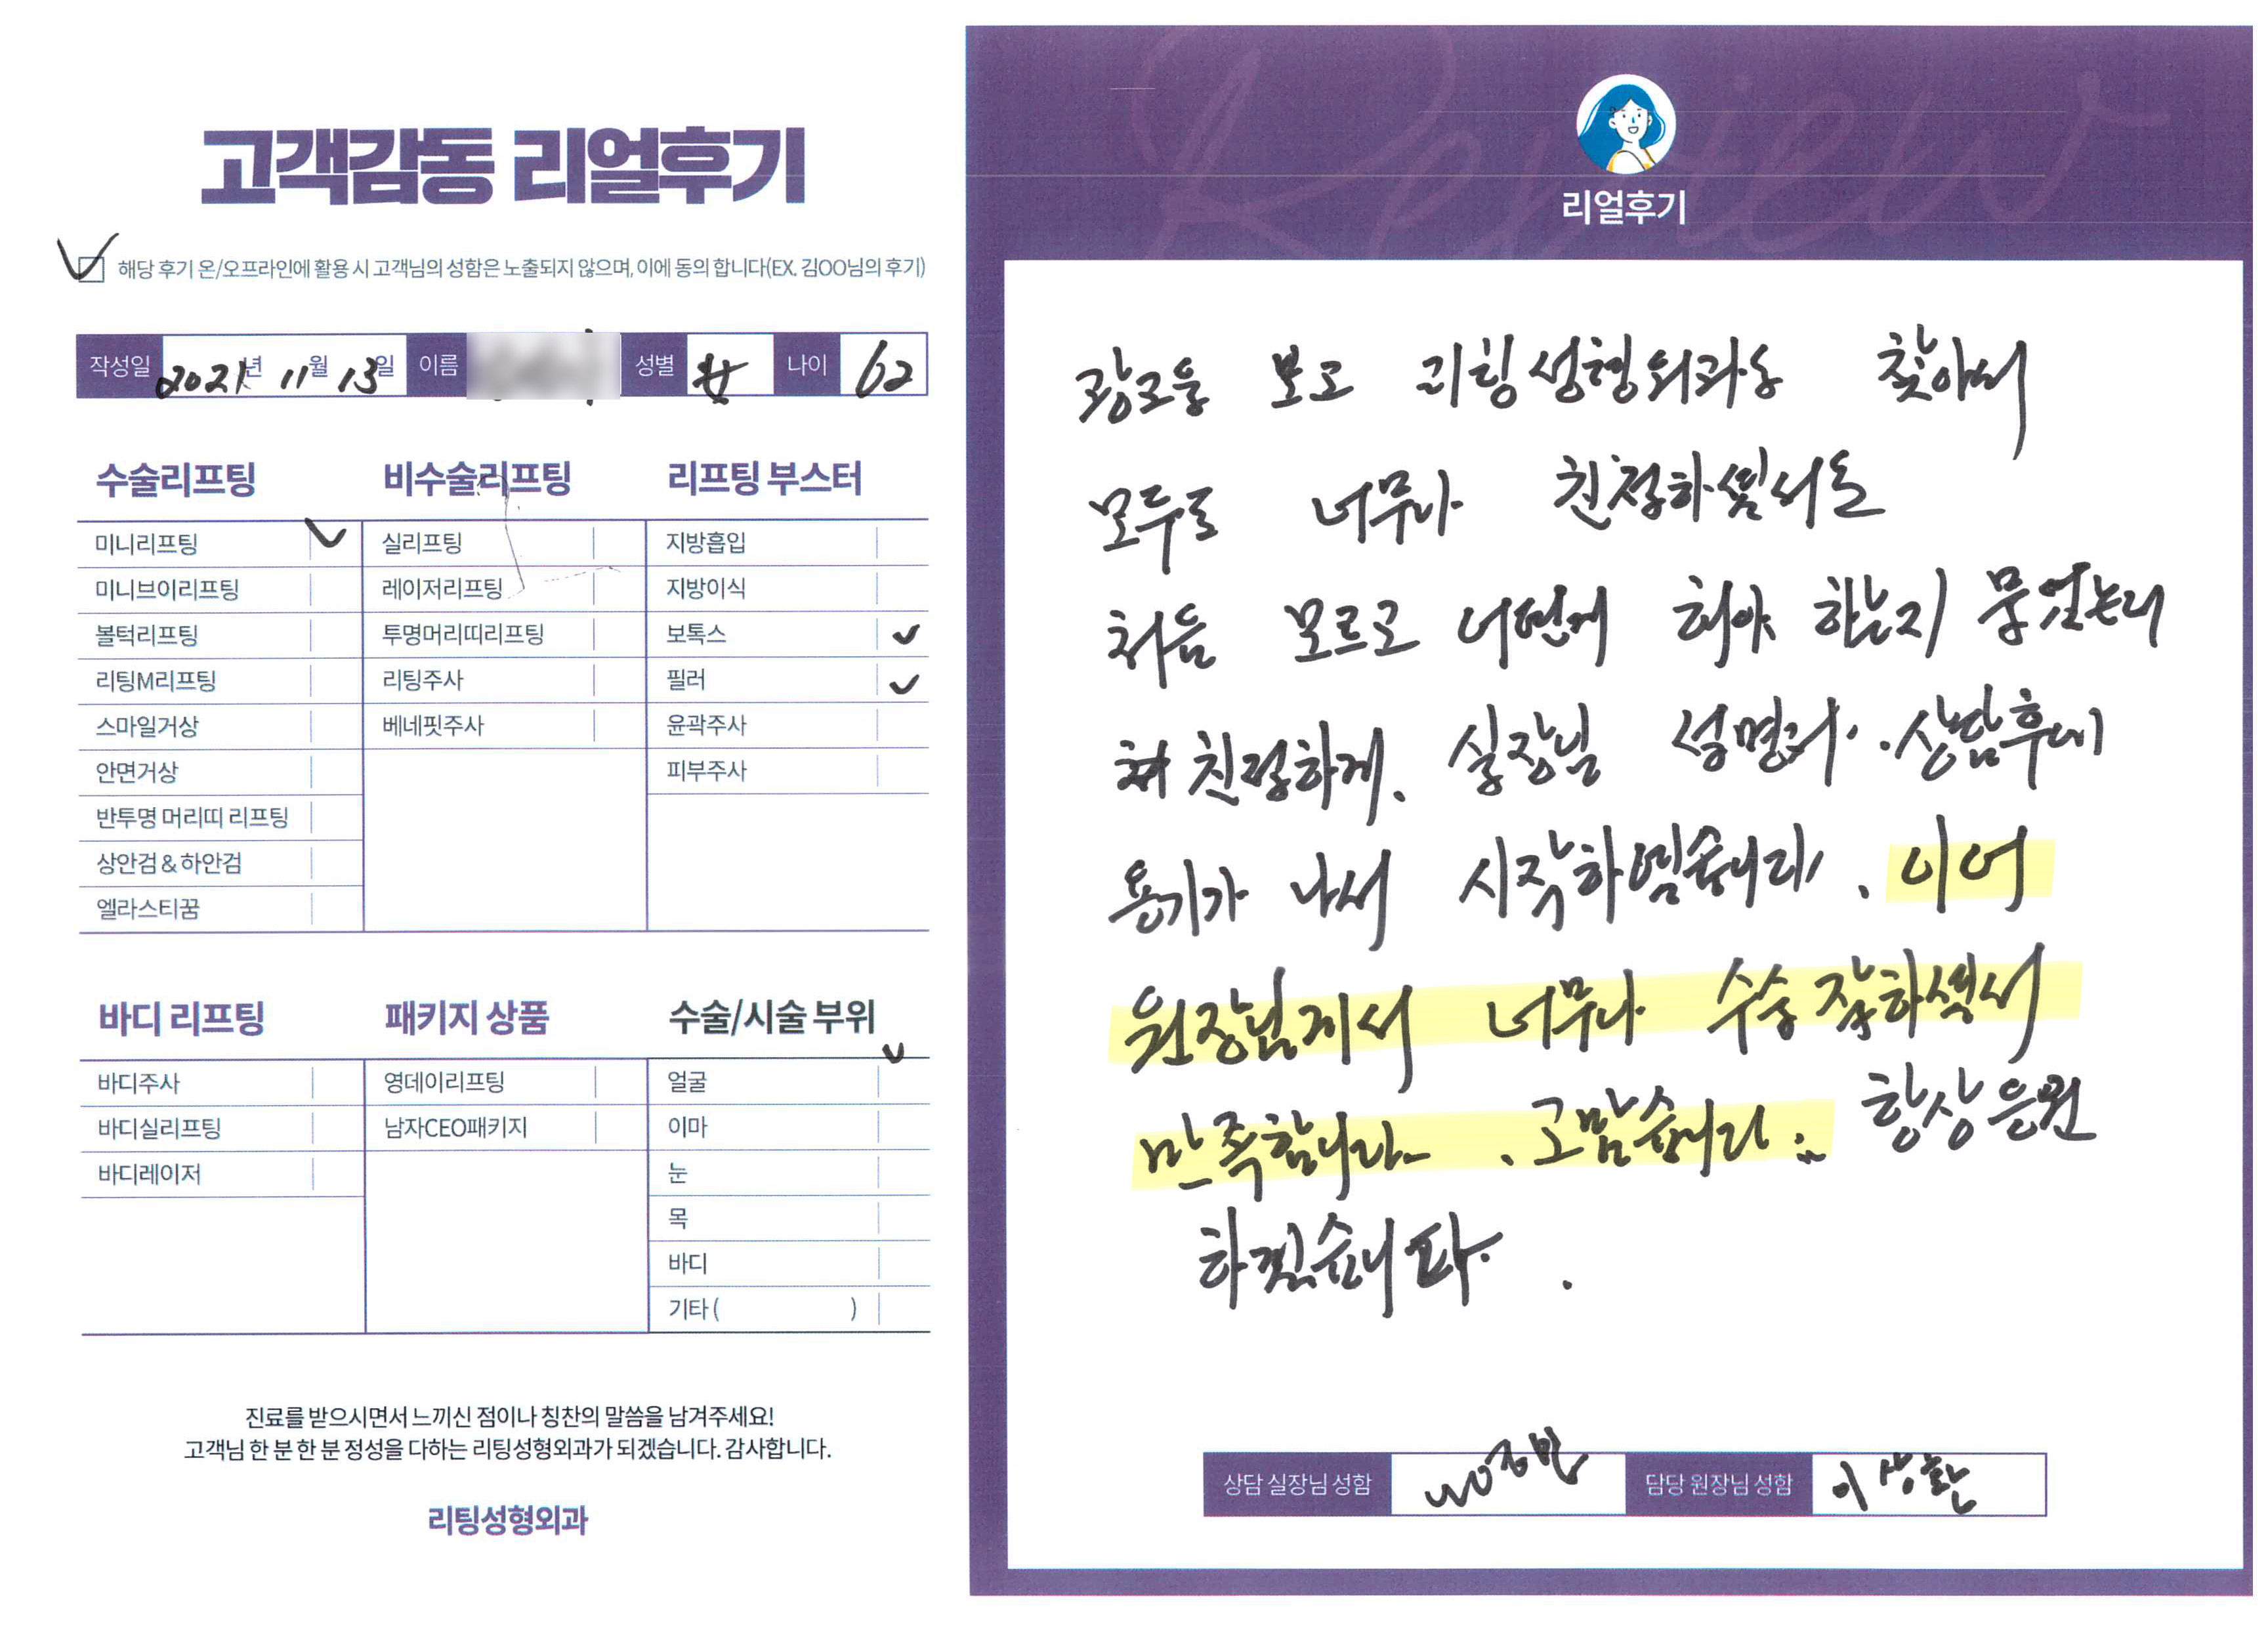 고객감동 리얼후기
해당 후기 온/오프라인에 활용 시 고객님의 성함은 노출되지 않으며, 이에 동의 합니다(EX. 김OO님의 후기)
작성일 2021년 11월 13일 이름 성별 女 나이 62
수술리프팅
미니리프팅
미니브이리프팅
볼턱리프팅
리팅M리프팅
스마일거상
안면거상
반투명 머리띠 리프팅
상안검 & 하안검
엘라스티꿈
비수술리프팅
실리프팅
레이저리프팅
투명머리띠리프팅
리팅주사
베네핏주사
리프팅 부스터
지방흡입
지방이식
보톡스
필러
윤곽주사
피부주사
바디 리프팅
바디주사
바디실리프팅
바디레이저
패키지 상품
영데이리프팅
남자CEO패키지
수술/시술 부위
얼굴
이마
눈
목
바디
기타 ( )
진료를 받으시면서 느끼신 점이나 칭찬의 말씀을 남겨주세요!
고객님 한 분 한 분 정성을 다하는 리팅성형외과가 되겠습니다. 감사합니다.
리팅성형외과
Review
리얼후기
광고을 보고 리팅성형외과을 찾아서
모두로 너무나
처음 모르고 어떤게 해야 하는지
친절하게. 실장님 상담후에
용기가 나서 시작하였습니다. 이어
원장님게서 너무나 수술 잘하셔서
만족합니다. 고맙습니다. 항상 응원
하겠습니다.
상담 실장님 성함 담당 원장님 성함